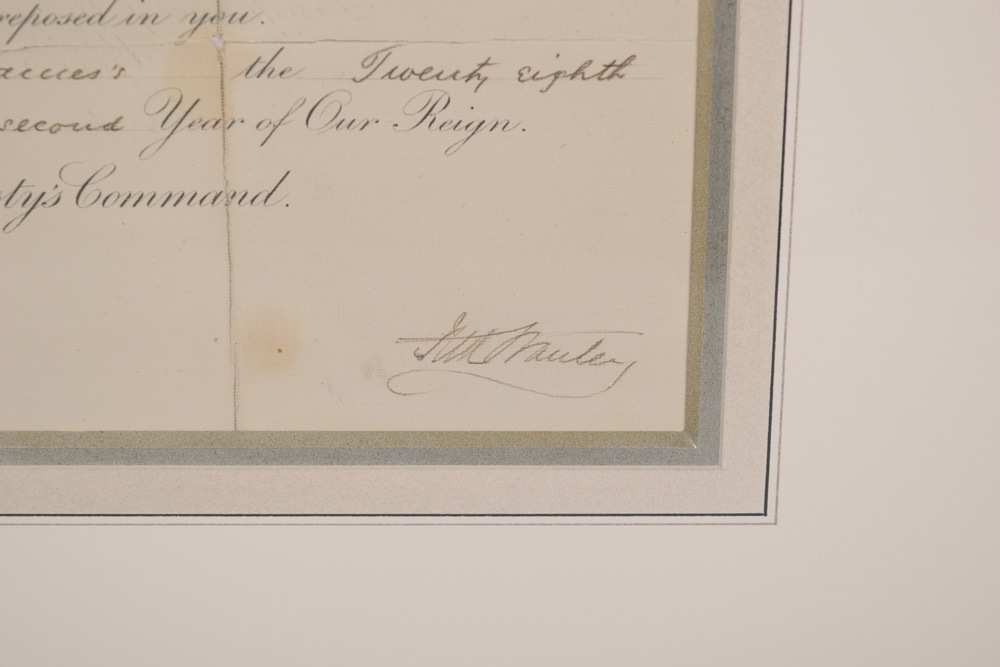 reposed in you.
the Twenty eighth
second Year of Our Reign.
ty's Command.